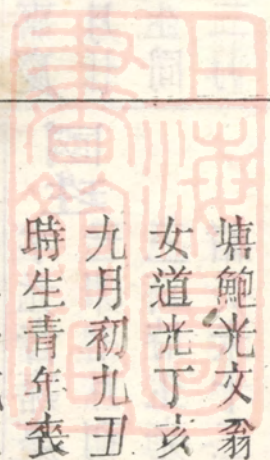 塘鮑光文翁
女道光丁亥
九月初九丑
時生青年喪